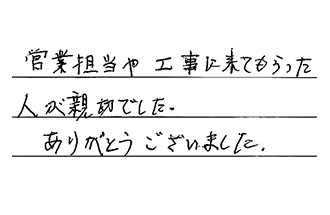 営業担当や工事に来てもらった
人が親切でした。
ありがとうございました。